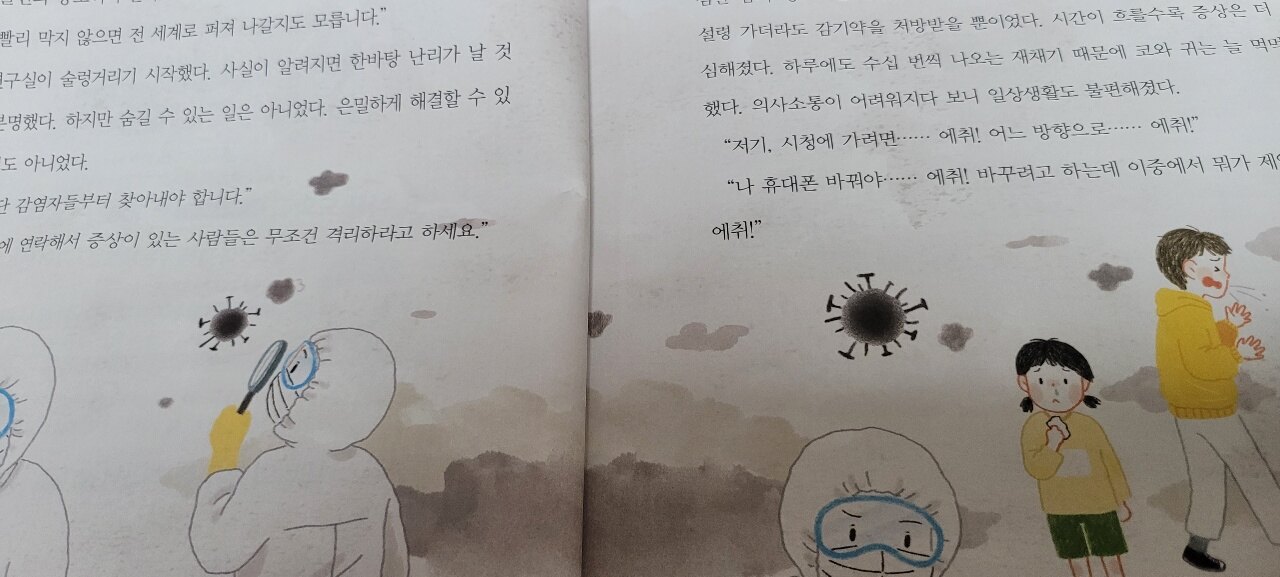 빨리 막지 않으면 전 세계로 퍼져 나갈지도 모릅니다.”
구실이 술렁거리기 시작했다. 사실이 알려지면 한바탕 난리가 날 것
분명했다. 하지만 숨길 수 있는 일은 아니었다. 은밀하게 해결할 수 있
도 아니었다.
단 감염자들부터 찾아내야 합니다.”
에 연락해서 증상이 있는 사람들은 무조건 격리하라고 하세요.”
설령 가더라도 감기약을 처방받을 뿐이었다. 시간이 흐를수록 증상은 더
심해졌다. 하루에도 수십 번씩 나오는 재채기 때문에 코와 귀는 늘 먹먹
했다. 의사소통이 어려워지다 보니 일상생활도 불편해졌다.
“저기, 시청에 가려면…… 에취! 어느 방향으로…… 에취!”
“나 휴대폰 바꿔야…… 에취! 바꾸려고 하는데 이중에서 뭐가 제
에취!”